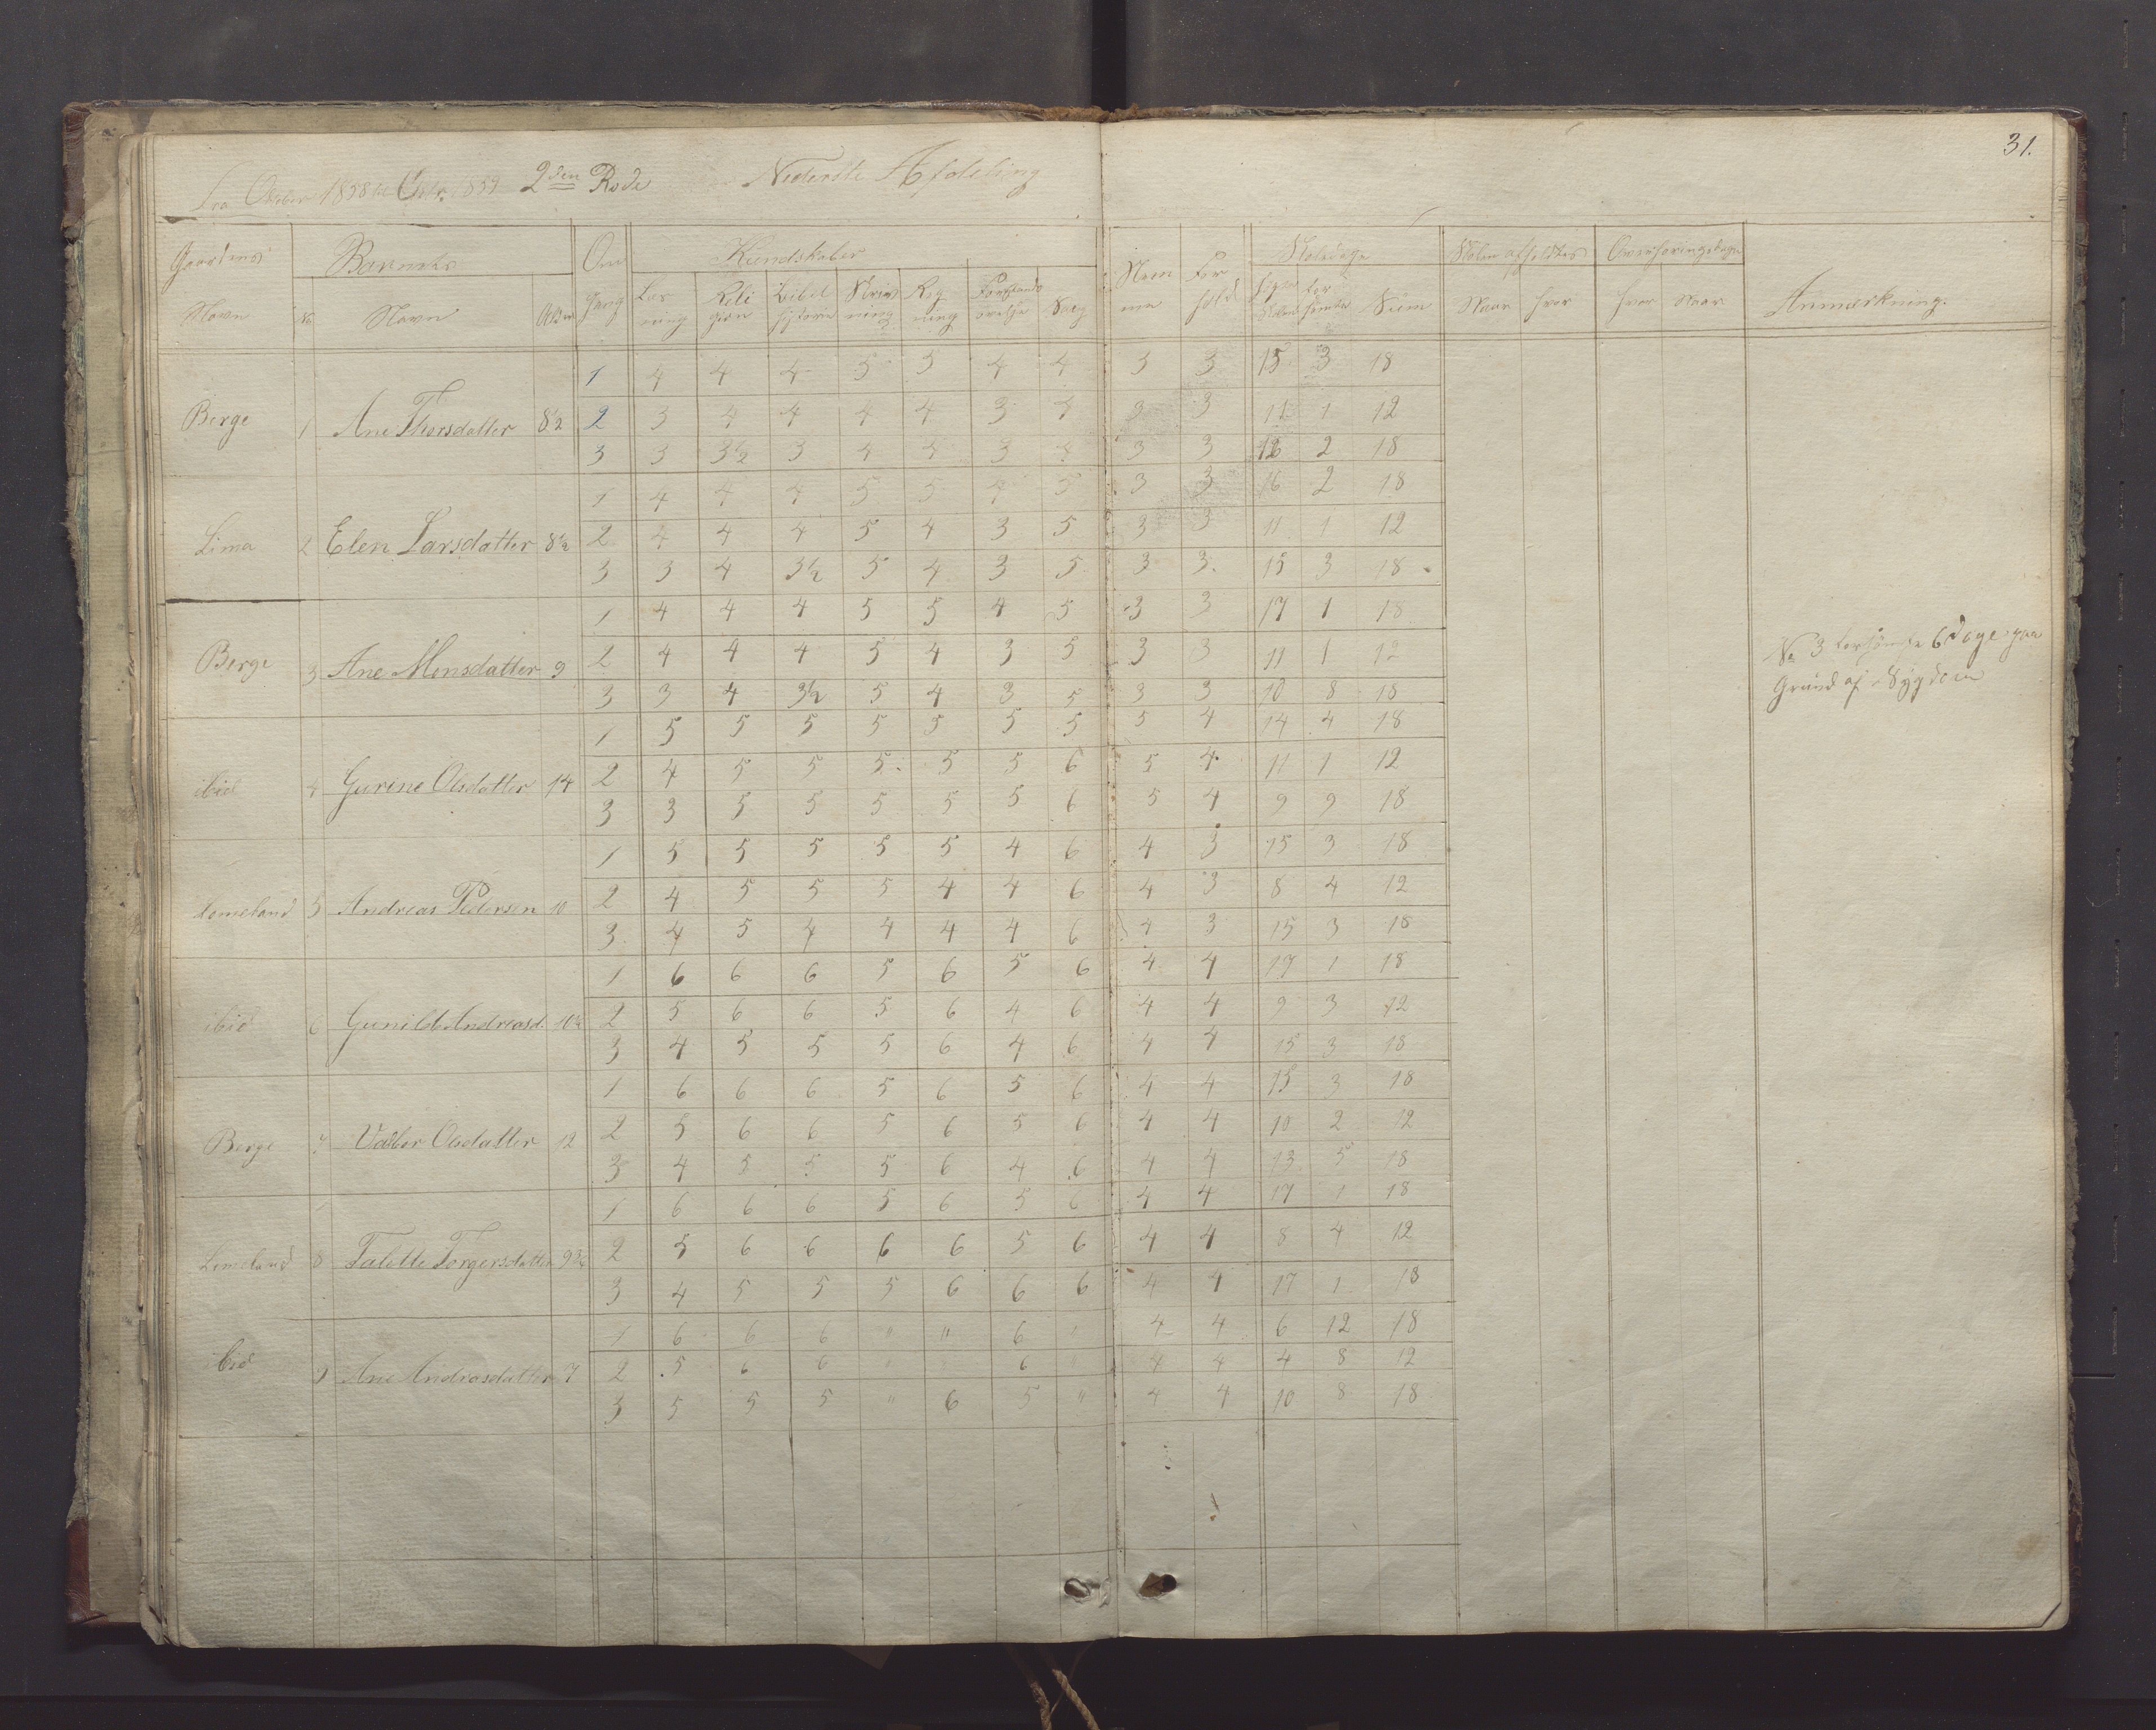 31.
Fra October 1858 til Octr. 1859 2den Rode Nederste Afdeling
Gaardens Barnets Om Kundskaber Nem For Skoledage Skolen afholdtes Overhøringsdage
Navn No Navn Alder gang Læs Reli Bibel Skriv Reg Forstands Sang me hold søgte for Sum Naar hvor hvor Naar Anmærkning.
ning gion historie ning ning øvelse Skolen sømte
1 4 4 4 5 5 4 4 3 3 15 3 18
Berge 1 Ane Thorsdatter 8½ 2 3 4 4 4 4 3 4 3 3 11 1 12
3 3 3½ 3 4 4 3 4 3 3 16 2 18
1 4 4 4 5 5 4 5 3 3 16 2 18
Lima 2 Elen Larsdatter 8½ 2 4 4 4 5 4 3 5 3 3 11 1 12
3 3 4 3½ 5 4 3 5 3 3. 15 3 18
1 4 4 4 5 5 4 5 3 3 17 1 18
Berge 3 Ane Monsdatter 9 2 4 4 4 5 4 3 5 3 3 11 1 12 No 3 forsømte 6 Dage paa
3 3 4 3½ 5 4 3 5 3 3 10 8 18 Grund af Sygdom
1 5 5 5 5 5 5 5 5 4 14 4 18
ibid 4 Gurine Olsdatter 14 2 4 5 5 5 5 5 6 5 4 11 1 12
3 3 5 5 5 5 5 6 5 4 9 9 18
1 5 5 5 5 5 4 6 4 3 15 3 18
5 Andreas Pedersen 10 2 4 5 5 5 4 4 6 4 3 8 4 12
3 4 5 4 4 4 4 6 4 3 15 3 18
1 6 6 6 5 6 5 6 4 4 17 1 18
ibid 6 Gunild Andreasd. 10½ 2 5 6 6 5 6 4 6 4 4 9 3 12
3 4 5 5 5 6 4 6 4 4 15 3 18
1 6 6 6 5 6 5 6 4 4 15 3 18
Berge 7 Valbor Olsdatter 12 2 5 6 6 5 6 5 6 4 4 10 2 12
3 4 5 5 5 6 4 6 4 4 13 5 18
1 6 6 6 5 6 5 6 4 4 17 1 18
Limeland 8 Talette Torgersdatter 9¾ 2 5 6 6 6 6 5 6 4 4 8 4 12
3 4 5 5 5 6 6 6 4 4 17 1 18
1 6 6 6 " " 6 " 4 4 6 12 18
ibid 9 Ane Andrasdatter 7 2 5 6 6 " 6 " 4 4 4 8 12
3 5 5 5 " 6 5 " 4 4 10 8 18